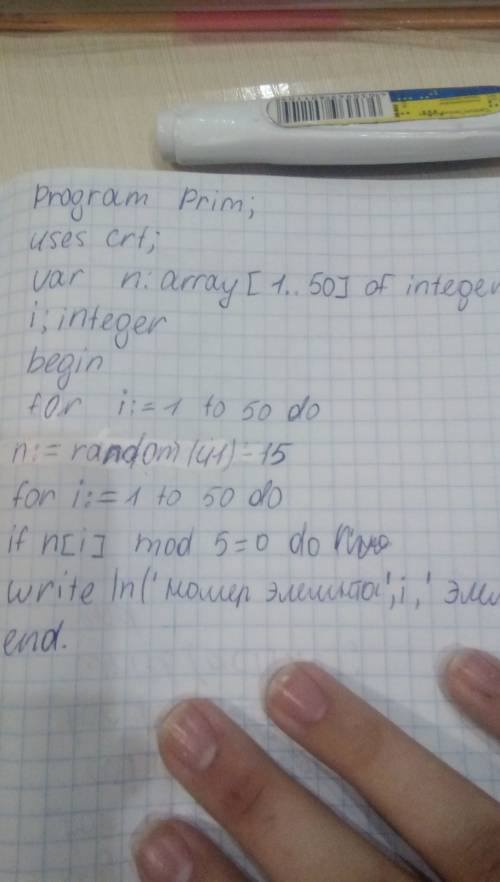 Program Prim;
uses crt;
var n: array [1..50] of integer
i; integer
begin
for i:=1 to 50 do
n:= random(41)-15
for i:=1 to 50 do
if n[i] mod 5=0 do
write ln('номер элемента',i,' элем
end.